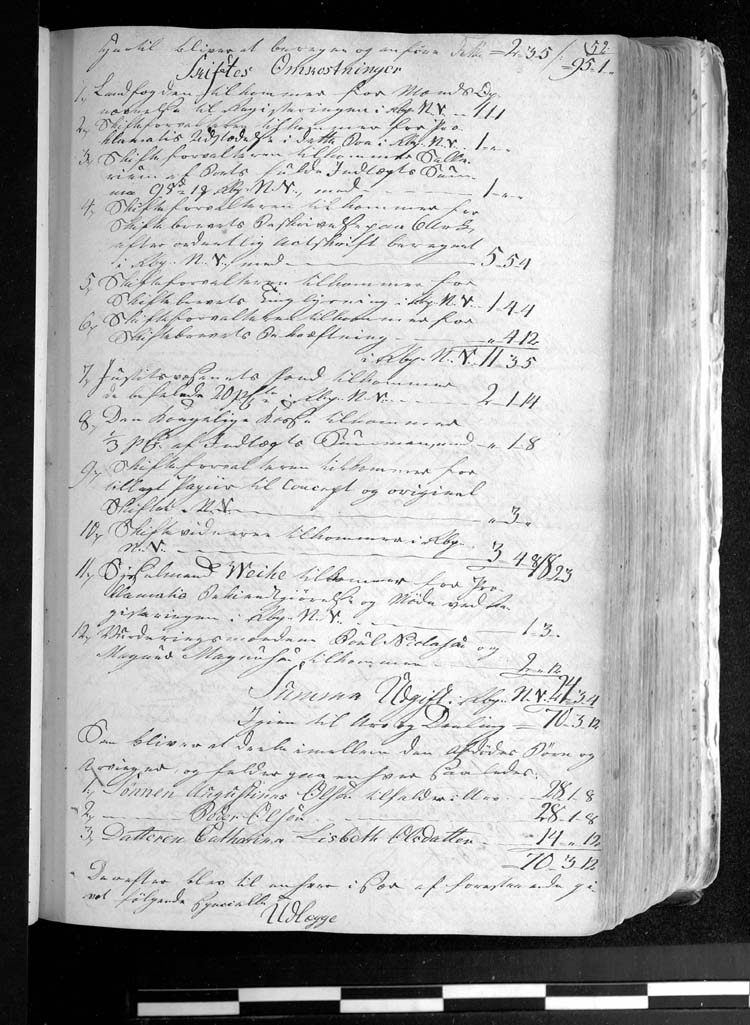 hertil bliver at beregne og anføre dette = 2 35 / 52
95. 1.
Skiftets Omkostninger
1, Landfogden tilkommer for Mænds Op-
nævnelse til Registeringen i Rbp. N.V. 4 11
2, Skifteforvalteren tilkommer for Pro-
clamatis Udstædelse i dette Boe i Rbp. N.V. 1 " "
3, Skifteforvalteren tilkommer Salla-
rium af Boets fulde Indtægts Sum-
ma 95 Rbp. N.V., med 1 " "
4, Skifteforvalteren tilkommer for
Skiftebrevets Beskrivelse paa 6 Ark,
efter ordentlig beregnet
i Rbp. N.V., med 5 54
5, Skifteforvalteren tilkommer for
Skiftebrevets i Rbp. N.V. 1 44
6, Skifteforvalteren tilkommer for
Skiftebrevets Bekræftning " 4 12
i Rbp. N.V. 11 35
7, Justitsvæsenets Fond tilkommer
de befalede 20 pCt i Rbp. N.V. 2 1 14
8, Den Kongelige Kasse tilkommer
1/3 pCt. af Indtægts Summen, med " 1 8
9, Skifteforvalteren tilkommer for
tillagt Papiir til Concept og original
Skiftet N.V. " 3 "
10, Skiftevidnerne tilkommer i Rbp.
N.V. 3 4 8 18 23
11, Sysselmand Weihe tilkommer for Pro-
clamatis Bekiendtgiørelse og Møde ved Re-
gisteringen i Rbp. N.V. 1 3 "
12, Vurderingsmændene Poul Niclasen og
Magnus Magnusen tilkommer 2 " 12
Summa Udgift i Rbp. N.V. 24 3 4
Igien til Arv og Deeling = 70 3 12
Som bliver at deele imellem den Afdødes Børn og
Arvinger, og falder paa enhver saaledes:
1, Sønnen Augustinus Olsen tilfalder illoo 28 1 8
2, Peder Olsen 28 1 8
3, Datteren Catharina Lisbeth Olsdatter 14 " 12
70 3 12
Derefter blev til enhver i Sær af forestaaende gi-
vet følgende specielle
Udlægge